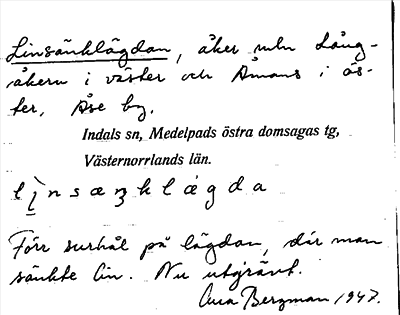 Linsänklägdan, åker mln Lång-
åkern i väster och Åmans i ös-
ter, Åse by.
Indals sn, Medelpads östra domsagas tg,
Västernorrlands län.
Förr surhål på lägdan, där man
sänkte lin. Nu utgrävt.
Bergman 1947.